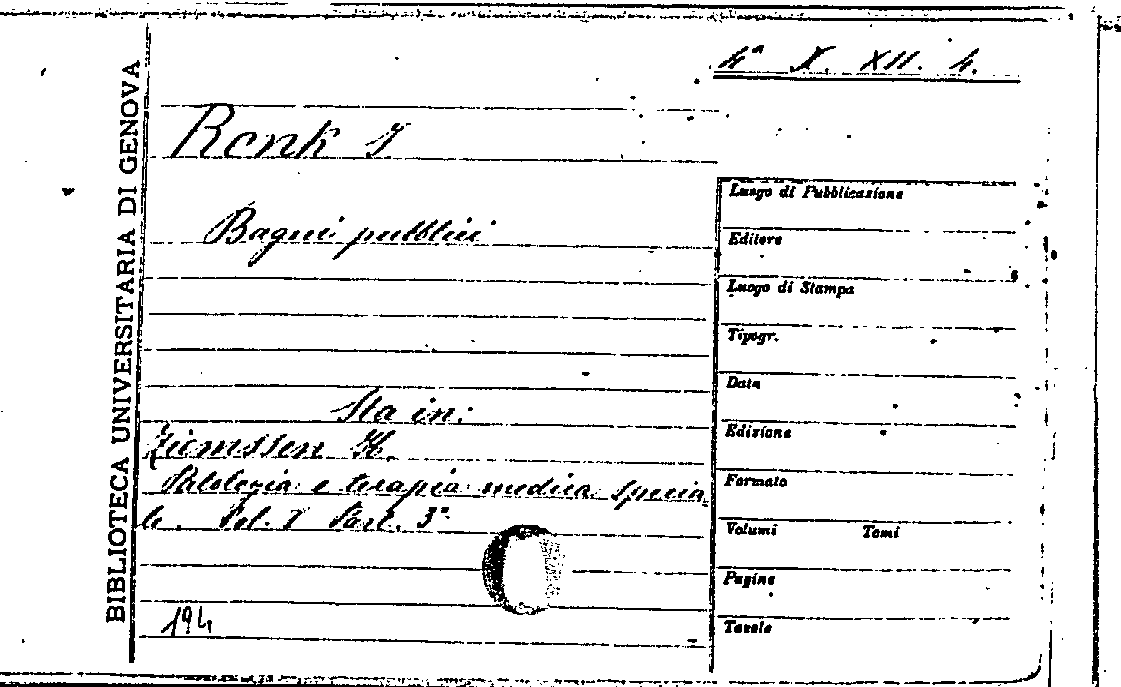 BIBLIOTECA UNIVERSITARIA DI GENOVA
4ª X. XII. 4.
Renk I
Bagni pubblici
Sta in:
Ziemssen H.
Patologia e terapia medica specia
le. Vol. I Part. 3ª
194
Luogo di Pubblicazione
Editore
Luogo di Stampa
Tipogr.
Data
Edizione
Formato
Volumi Tomi
Pagine
Tavole